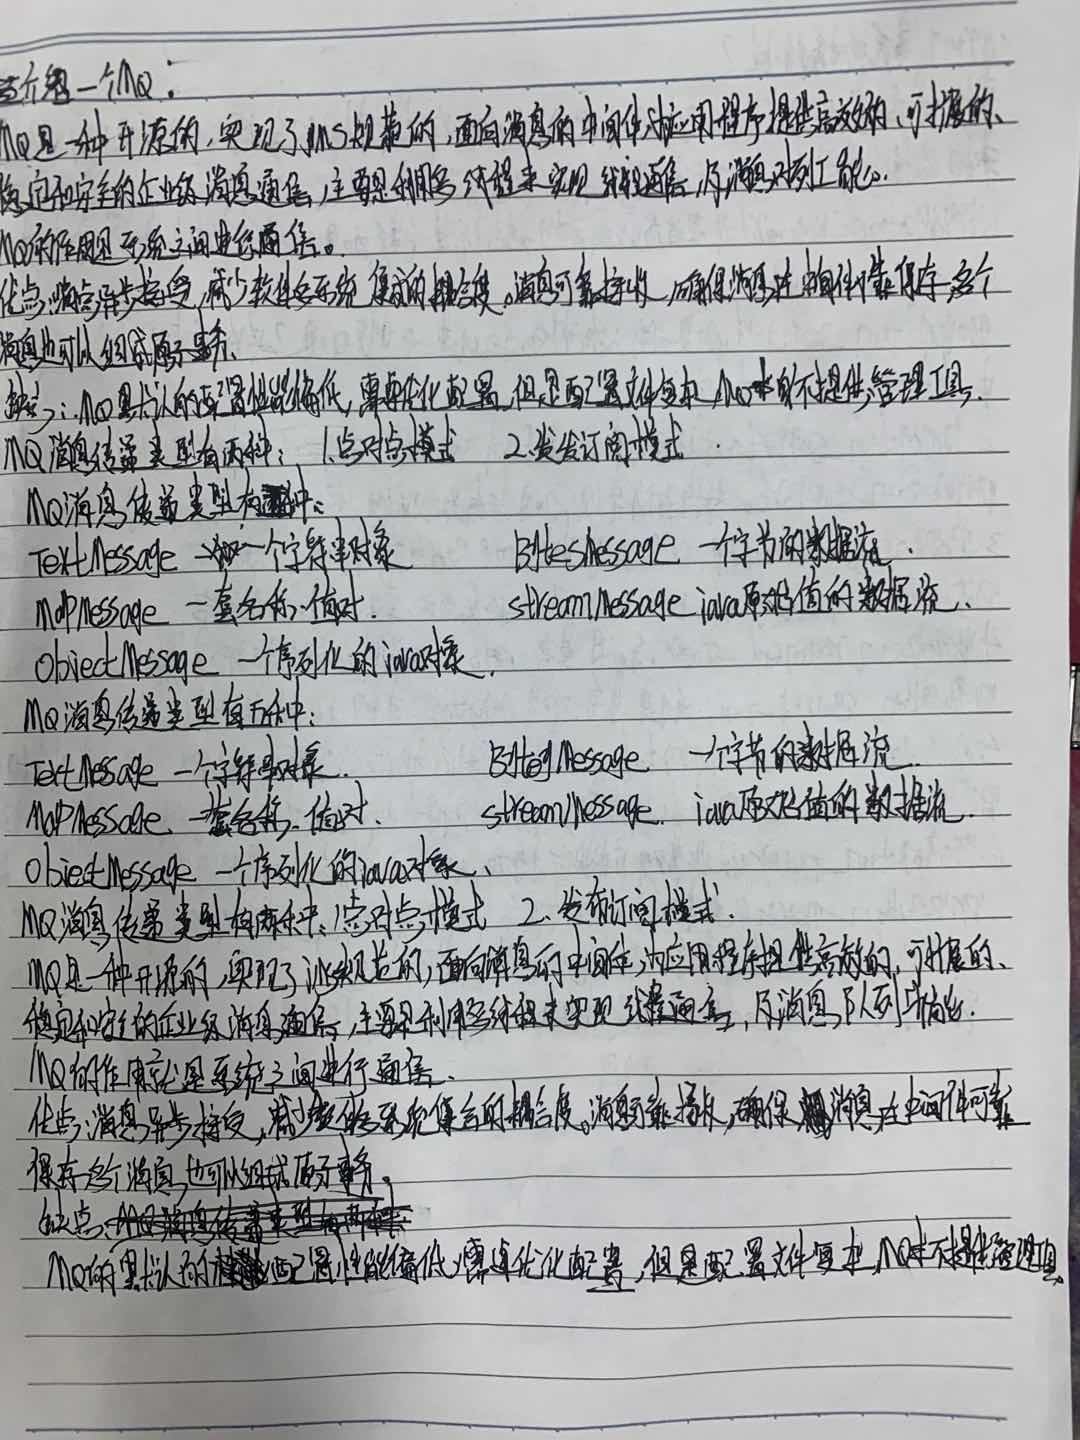 介绍一个MQ:
MQ是一种开源的,实现了JMS规范的,面向消息的中间件,为应用程序提供高效的、可扩展的、
稳定和安全的企业级消息通信,主要是利用多线程来实现线程通信,及消息队列功能。
MQ的作用是系统之间进行通信。
优点:消息异步接受,减少软件多系统集成的耦合度。消息可靠接收,确保消息在中间件可靠保存,多个
消息也可以组成原子事务、
缺点:MQ默认的配置性能偏低,需要优化配置,但是配置文件复杂,MQ本身不提供管理工具、
MQ消息传递类型有两种: 1.点对点模式 2.发发订阅模式.
MQ消息传递类型有种:
TextMessage 一个字符串对象 BytesMessage 一个字节的数据流.
MapMessage 一套名称、值对. streamMessage java原始值的数据流、
ObjectMessage 一个序列化的java对象.
MQ消息传递类型有五种:
TextMessage 一个字符串对象. BytesMessage 一个字节的数据流.
MapMessage 一套名称、值对. streamMessage. java原始值的数据流.
ObjectMessage 一个序列化的java对象、
MQ消息传递类型有两种:1点对点模式 2.发布订阅模式.
MQ是一种开源的,实现了jms规范的,面向消息的中间件,为应用程序提供高效的,可扩展的、
稳定和安全的企业级消息通信,主要是利用多线程来实现线程通信,及消息队列功能.
MQ的作用就是系统之间进行通信.
优点:消息异步接受,减少软件多系统集合的耦合度。消息可靠接收,确保消息在中间件可靠
保存多个消息也可以组成原子事务。
缺点:
MQ的默认的配置性能偏低,需要优化配置,但是配置文件复杂,MQ本不提供管理工具